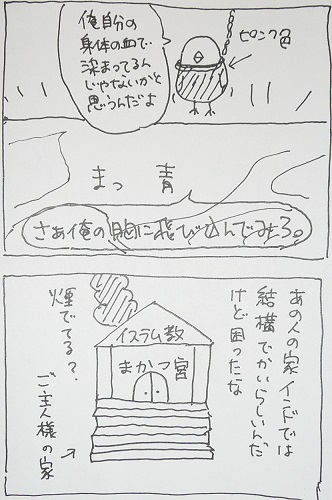 俺自分の
身体の血で
染まってるん
じゃないかと
思うんだよ
ピンク色
まっ青
さあ俺の胸に飛び込んでみろ。
あの人の家インドでは
結構でかいらしいんだ
けど困ったな
イスラム教
まかつ宮
煙でてる?.
ご主人様の家